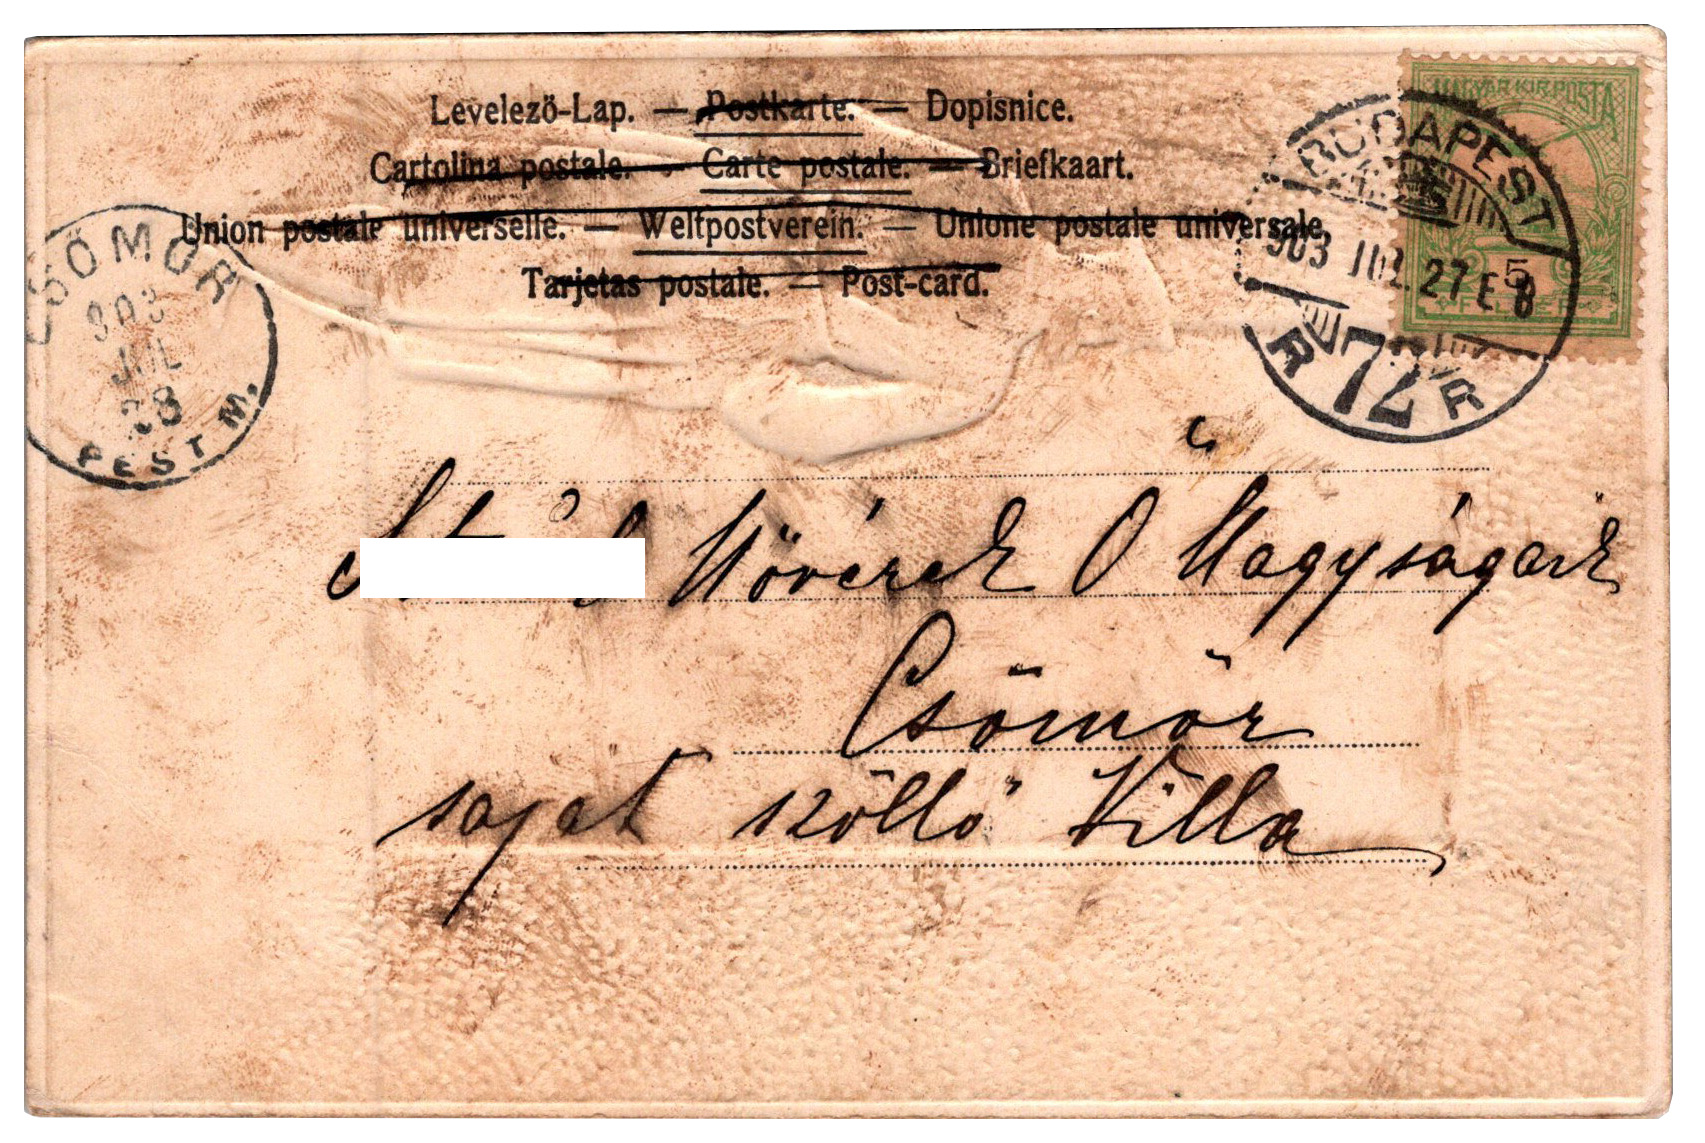 Levelező-Lap. — Postkarte. — Dopisnice.
Cartolina postale. — Carte postale. — Briefkaart.
Union postale universelle. — Weltpostverein. — Unione postale universale.
Tarjetas postale. — Post-card.
MAGYAR KIR. POSTA
5
FILLÉR
BUDAPEST
903 JUL 27 E 8
72
CSÖMÖR
903
JUL
28
PEST M.
Növérek Ő Nagyságaik
Csömör
saját szöllő Villa